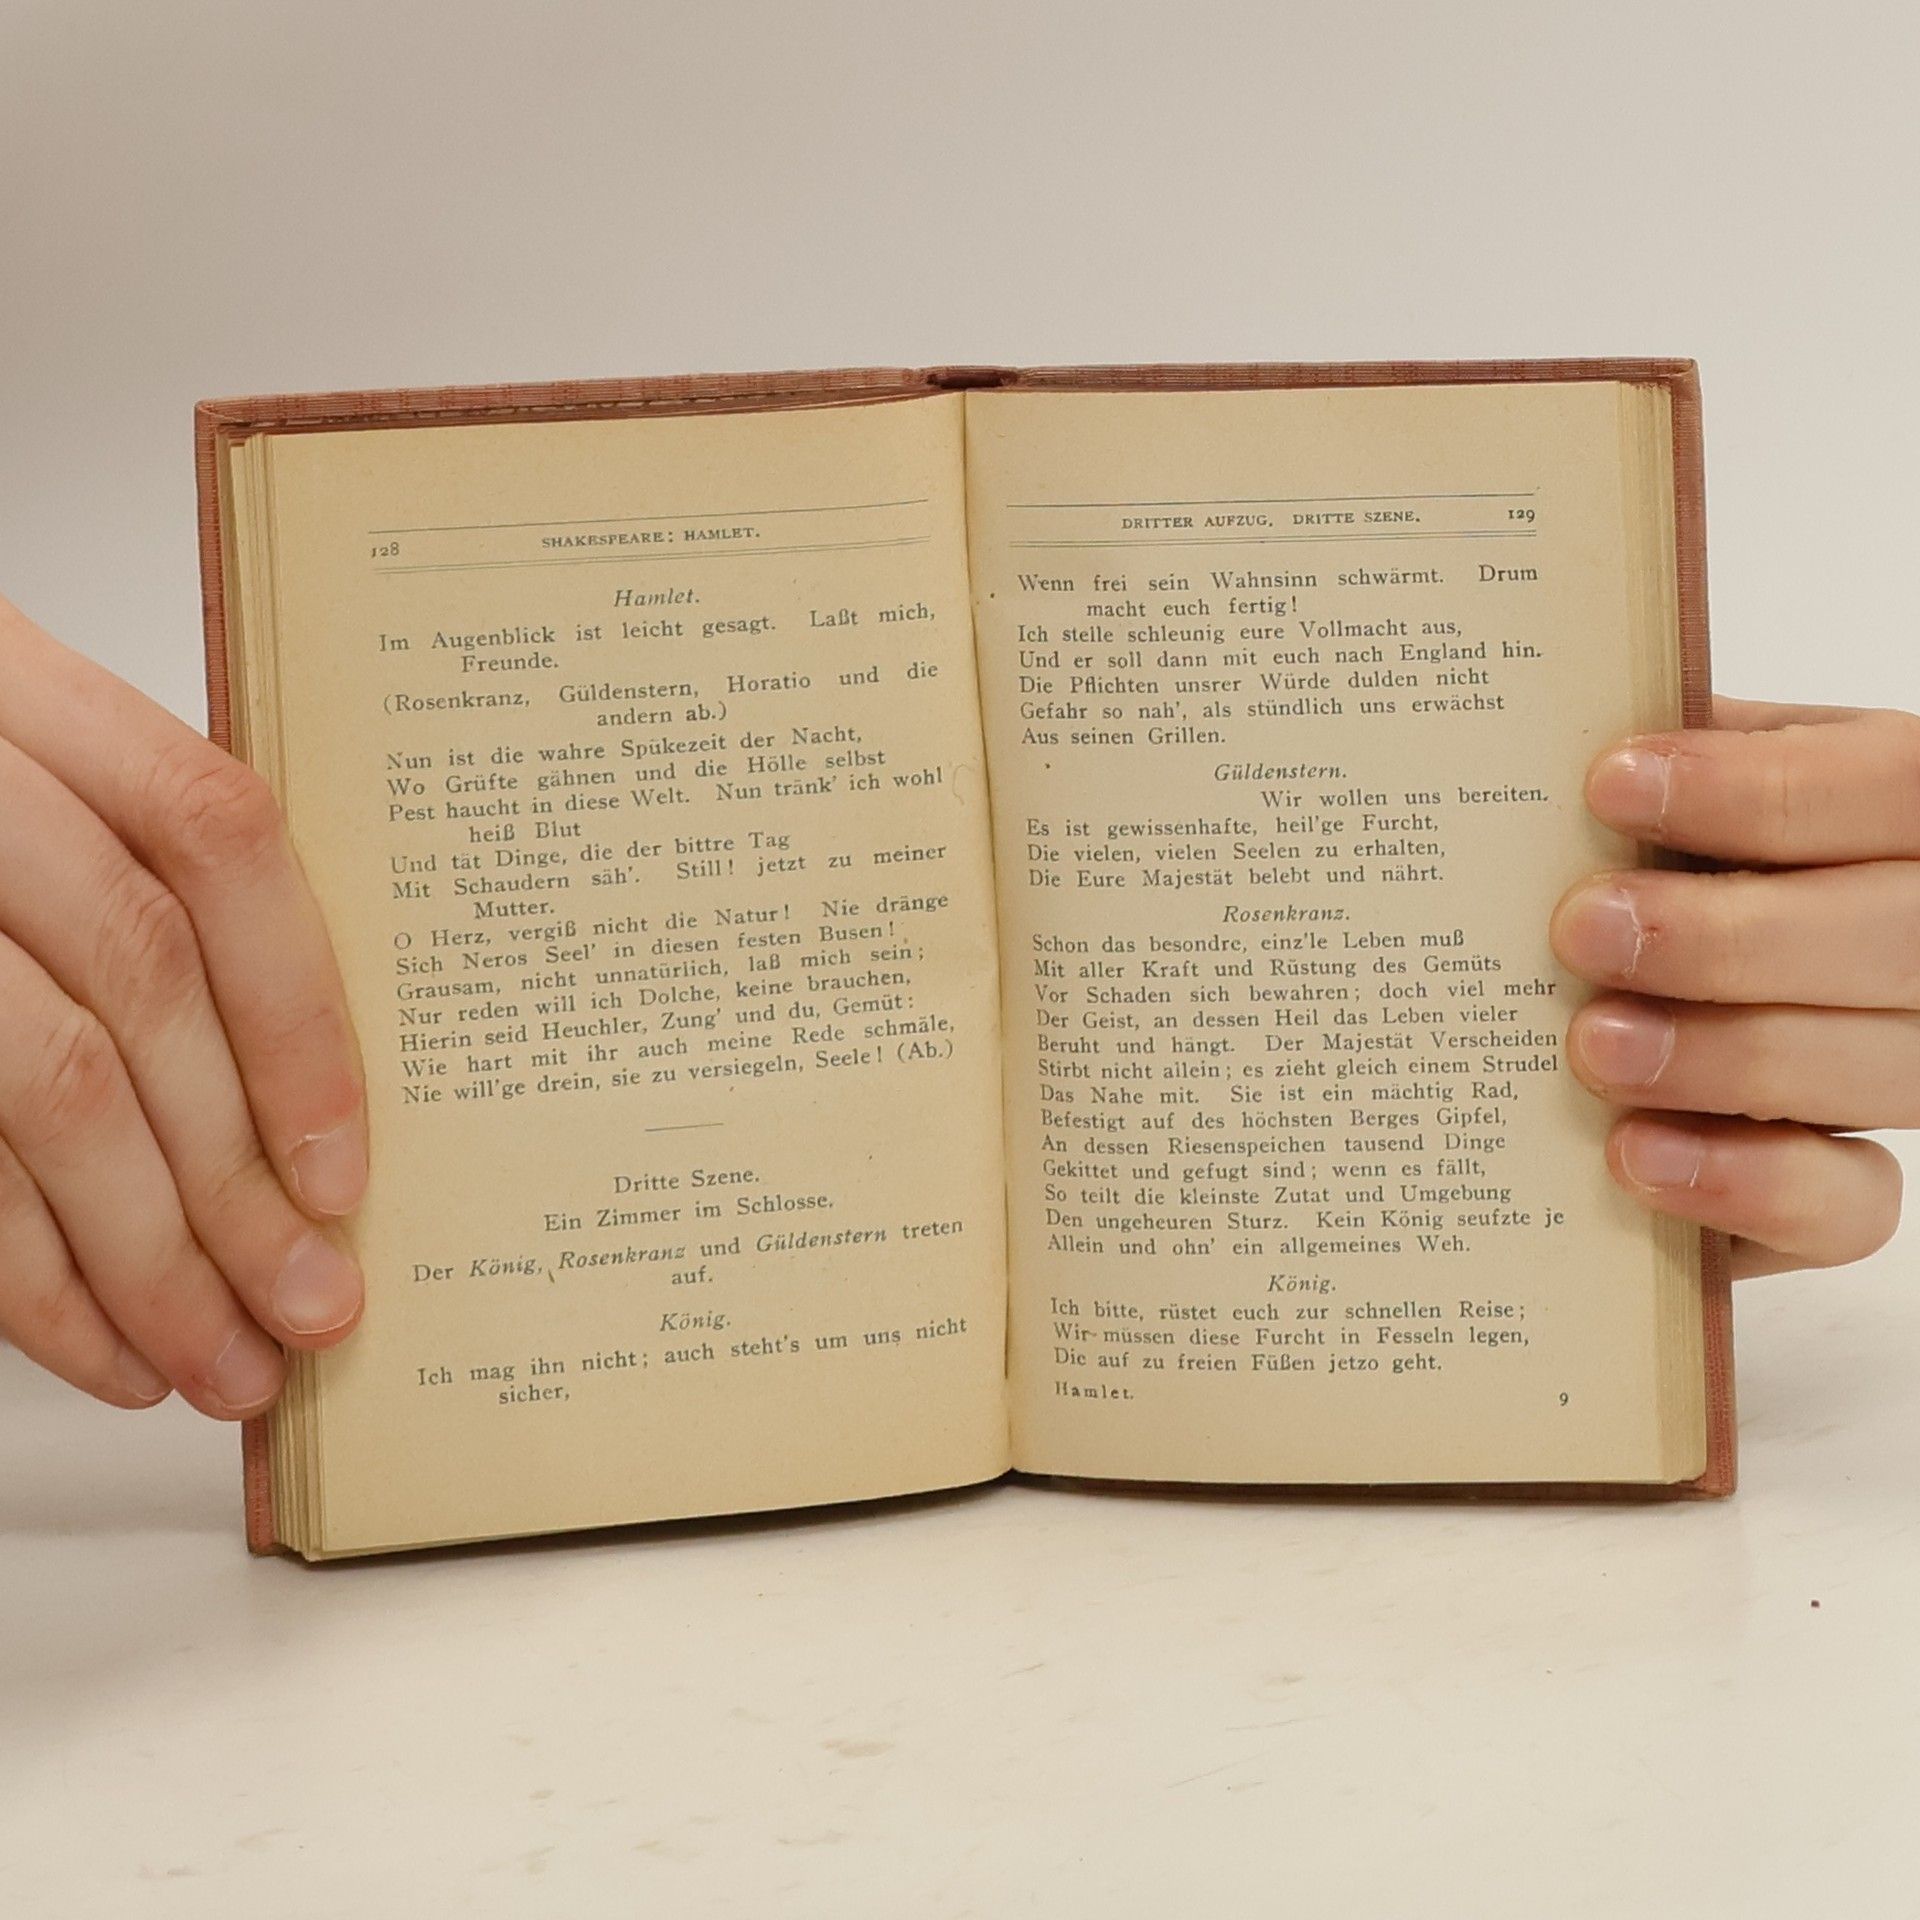 128
SHAKESPEARE: HAMLET.
Hamlet.
Im Augenblick ist leicht gesagt. Laßt mich,
Freunde.
(Rosenkranz, Güldenstern, Horatio und die
andern ab.)
Nun ist die wahre Spükezeit der Nacht,
Wo Grüfte gähnen und die Hölle selbst
Pest haucht in diese Welt. Nun tränk' ich wohl
heiß Blut
Und tät Dinge, die der bittre Tag
Mit Schaudern säh'. Still! jetzt zu meiner
Mutter.
O Herz, vergiß nicht die Natur! Nie dränge
Sich Neros Seel' in diesen festen Busen!
Grausam, nicht unnatürlich, laß mich sein;
Nur reden will ich Dolche, keine brauchen,
Hierin seid Heuchler, Zung' und du, Gemüt:
Wie hart mit ihr auch meine Rede schmäle,
Nie will'ge drein, sie zu versiegeln, Seele! (Ab.)
Dritte Szene.
Ein Zimmer im Schlosse.
Der König, Rosenkranz und Güldenstern treten
auf.
König.
Ich mag ihn nicht; auch steht's um uns nicht
sicher,
DRITTER AUFZUG. DRITTE SZENE.
129
Wenn frei sein Wahnsinn schwärmt. Drum
macht euch fertig!
Ich stelle schleunig eure Vollmacht aus,
Und er soll dann mit euch nach England hin.
Die Pflichten unsrer Würde dulden nicht
Gefahr so nah', als stündlich uns erwächst
Aus seinen Grillen.
Güldenstern.
Wir wollen uns bereiten.
Es ist gewissenhafte, heil'ge Furcht,
Die vielen, vielen Seelen zu erhalten,
Die Eure Majestät belebt und nährt.
Rosenkranz.
Schon das besondre, einz'le Leben muß
Mit aller Kraft und Rüstung des Gemüts
Vor Schaden sich bewahren; doch viel mehr
Der Geist, an dessen Heil das Leben vieler
Beruht und hängt. Der Majestät Verscheiden
Stirbt nicht allein; es zieht gleich einem Strudel
Das Nahe mit. Sie ist ein mächtig Rad,
Befestigt auf des höchsten Berges Gipfel,
An dessen Riesenspeichen tausend Dinge
Gekittet und gefugt sind; wenn es fällt,
So teilt die kleinste Zutat und Umgebung
Den ungeheuren Sturz. Kein König seufzte je
Allein und ohn' ein allgemeines Weh.
König.
Ich bitte, rüstet euch zur schnellen Reise;
Wir müssen diese Furcht in Fesseln legen,
Die auf zu freien Füßen jetzo geht.
Hamlet.
9